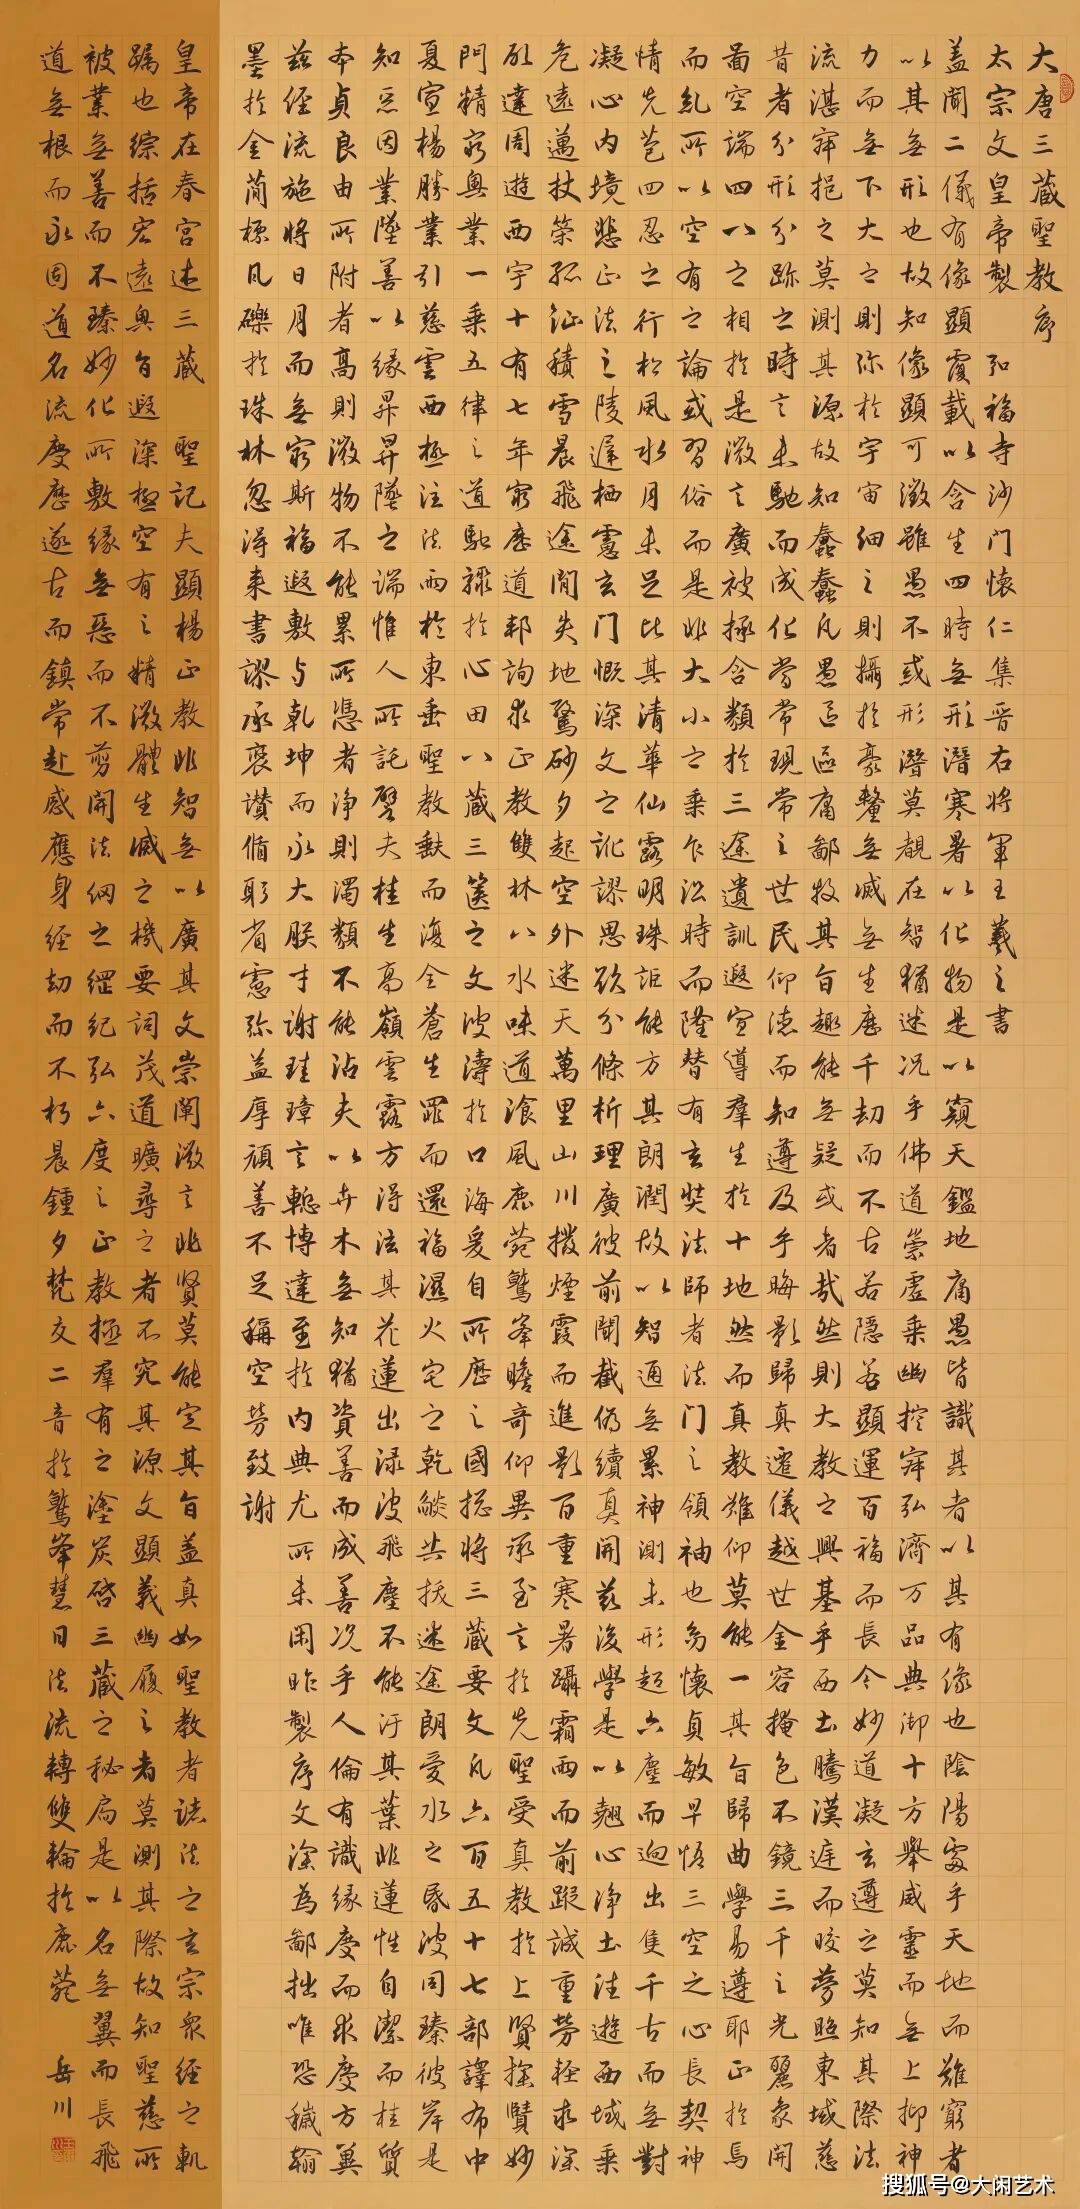 大唐三蔵聖教序
太宗文皇帝製 弘福寺沙門懷仁集晉右將軍王羲之書
蓋聞二儀有像顯覆載以含生四時無形潛寒暑以化物是以窺天鑑地庸愚皆識其者以其有像也陰陽處乎天地而難窮者
以其無形也故知像顯可徵雖愚不惑形潛莫覩在智猶迷況乎佛道崇虛乘幽控寂弘濟万品典御十方舉威靈而無上抑神
力而無下大之則弥於宇宙細之則攝於豪釐無滅無生歷千劫而不古若隱若顯運百福而長今妙道凝玄遵之莫知其際法
流湛寂挹之莫測其源故知蠢蠢凡愚區區庸鄙投其旨趣能無疑或者哉然則大教之興基乎西土騰漢庭而皎夢照東域慈
昔者分形分跡之時言未馳而成化當常現常之世民仰德而知遵及乎晦影歸真遷儀越世金容掩色不鏡三千之光麗象開
啚空端四八之相於是微言廣被拯含類於三途遺訓遐宣導群生於十地然而真教難仰莫能一其旨歸曲學易遵耶正於焉
而紏所以空有之論或習俗而是非大小之乘乍沿時而隆替有玄奘法師者法門之領袖也幼懷貞敏早悟三空之心長契神
情先苞四忍之行松風水月未足比其清華仙露明珠詎能方其朗潤故以智通無累神測未形超六塵而迥出隻千古而無對
凝心內境悲正法之陵遲栖慮玄門慨深文之訛謬思欲分條析理廣彼前聞截偽續真開茲後學是以翹心淨土法遊西域乘
危遠邁杖策孤征積雪晨飛途間失地驚砂夕起空外迷天萬里山川撥煙霞而進影百重寒暑躡霜雨而前蹤誠重勞輕求深
願達周遊西宇十有七年窮歷道邦詢求正教雙林八水味道湌風鹿菀鷲峯瞻奇仰異承至言於先聖受真教於上賢探賾妙
門精窮奧業一乘五律之道馳驟於心田八蔵三篋之文波濤於口海爰自所歷之國揔將三蔵要文凡六百五十七部譯布中
夏宣楊勝業引慈雲西極注法雨於東垂聖教缺而復全蒼生罪而還福濕火宅之乾燄共拔迷途朗愛水之昏波同臻彼岸是
知惡因業墜善以緣昇昇墜之端惟人所託譬夫桂生高嶺雲露方得泫其花蓮出淥波飛塵不能汙其葉非蓮性自潔而桂質
本貞良由所附者高則微物不能累所憑者淨則濁類不能沾夫以卉木無知猶資善而成善況乎人倫有識緣慶而求慶方冀
茲經流施將日月而無窮斯福遐敷与乾坤而永大朕才謝珪璋言慙博達至於內典尤所未閑昨製序文深為鄙拙唯恐穢翰
墨於金簡標瓦礫於珠林忽得來書謬承褒讚循躬省慮弥益厚顏善不足稱空勞致謝
皇帝在春宮述三蔵 聖記夫顯楊正教非智無以廣其文崇闡微言非賢莫能定其旨蓋真如聖教者諸法之玄宗衆經之軌
躅也綜括宏遠奧旨遐深極空有之精微體生滅之機要詞茂道曠尋之者不究其源文顯義幽履之者莫測其際故知聖慈所
被業無善而不臻妙化所敷緣無惡而不剪開法綱之綱紀弘六度之正教拯群有之塗炭啓三蔵之秘扃是以名無翼而長飛
道無根而永固道名流慶歷遂古而鎮常赴感應身經劫而不朽晨鍾夕梵交二音於鷲峯慧日法流轉雙輪於鹿菀 岳川
搜狐号@大闲艺术